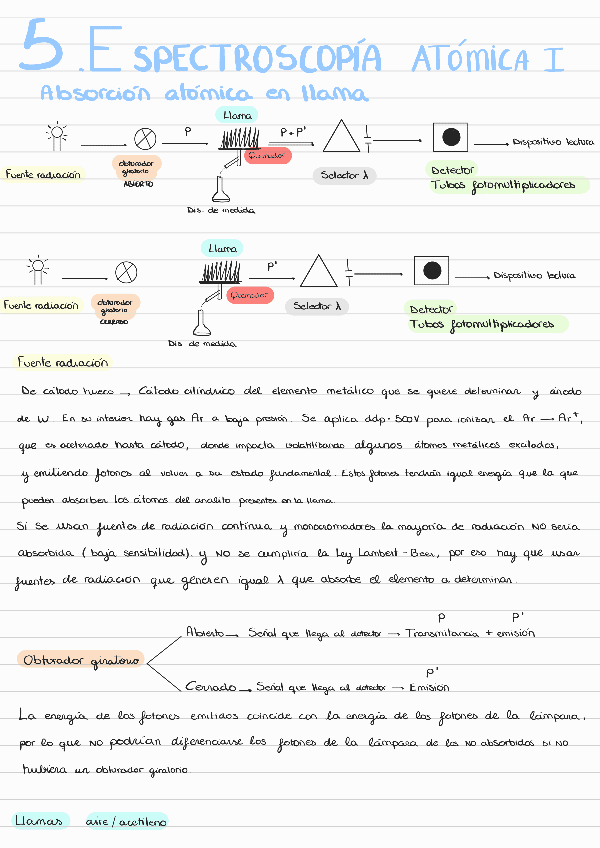 5. ESPECTROSCOPÍA ATÓMICA I
Absorción atómica en llama
Llama
P
P + P'
Quemador
Dispositivo lectura
Fuente radiación
obturador
giratorio
ABIERTO
Selector λ
Detector
Tubos fotomultiplicadores
Dis. de medida
Llama
P'
Quemador
Dispositivo lectura
Fuente radiación
obturador
giratorio
CERRADO
Selector λ
Detector
Tubos fotomultiplicadores
Dis. de medida
Fuente radiación
De cátodo hueco → Cátodo cilíndrico del elemento metálico que se quiere determinar y ánodo
de W. En su interior hay gas Ar a baja presión. Se aplica ddp · 500V para ionizar el Ar → Ar⁺,
que es acelerado hasta cátodo, donde impacta volatilizando algunos átomos metálicos exitados,
y emitiendo fotones al volver a su estado fundamental. Estos fotones tendrán igual energía que la que
pueden absorber los átomos del analito presentes en la llama.
Si se usan fuentes de radiación continua y monocromadores la mayoría de radiación NO sería
absorbida (baja sensibilidad). y NO se cumpliría la Ley Lambert-Beer, por eso hay que usar
fuentes de radiación que generen igual λ que absorbe el elemento a determinar.
P P'
Abierto → Señal que llega al detector → Transmitancia + emisión
Obturador giratorio
P'
Cerrado → Señal que llega al detector → Emisión
La energía de los fotones emitidos coincide con la energía de los fotones de la lámpara,
por lo que NO podrían diferenciarse los fotones de la lámpara de los NO absorbidos si NO
hubiera un obturador giratorio.
Llamas aire/acetileno